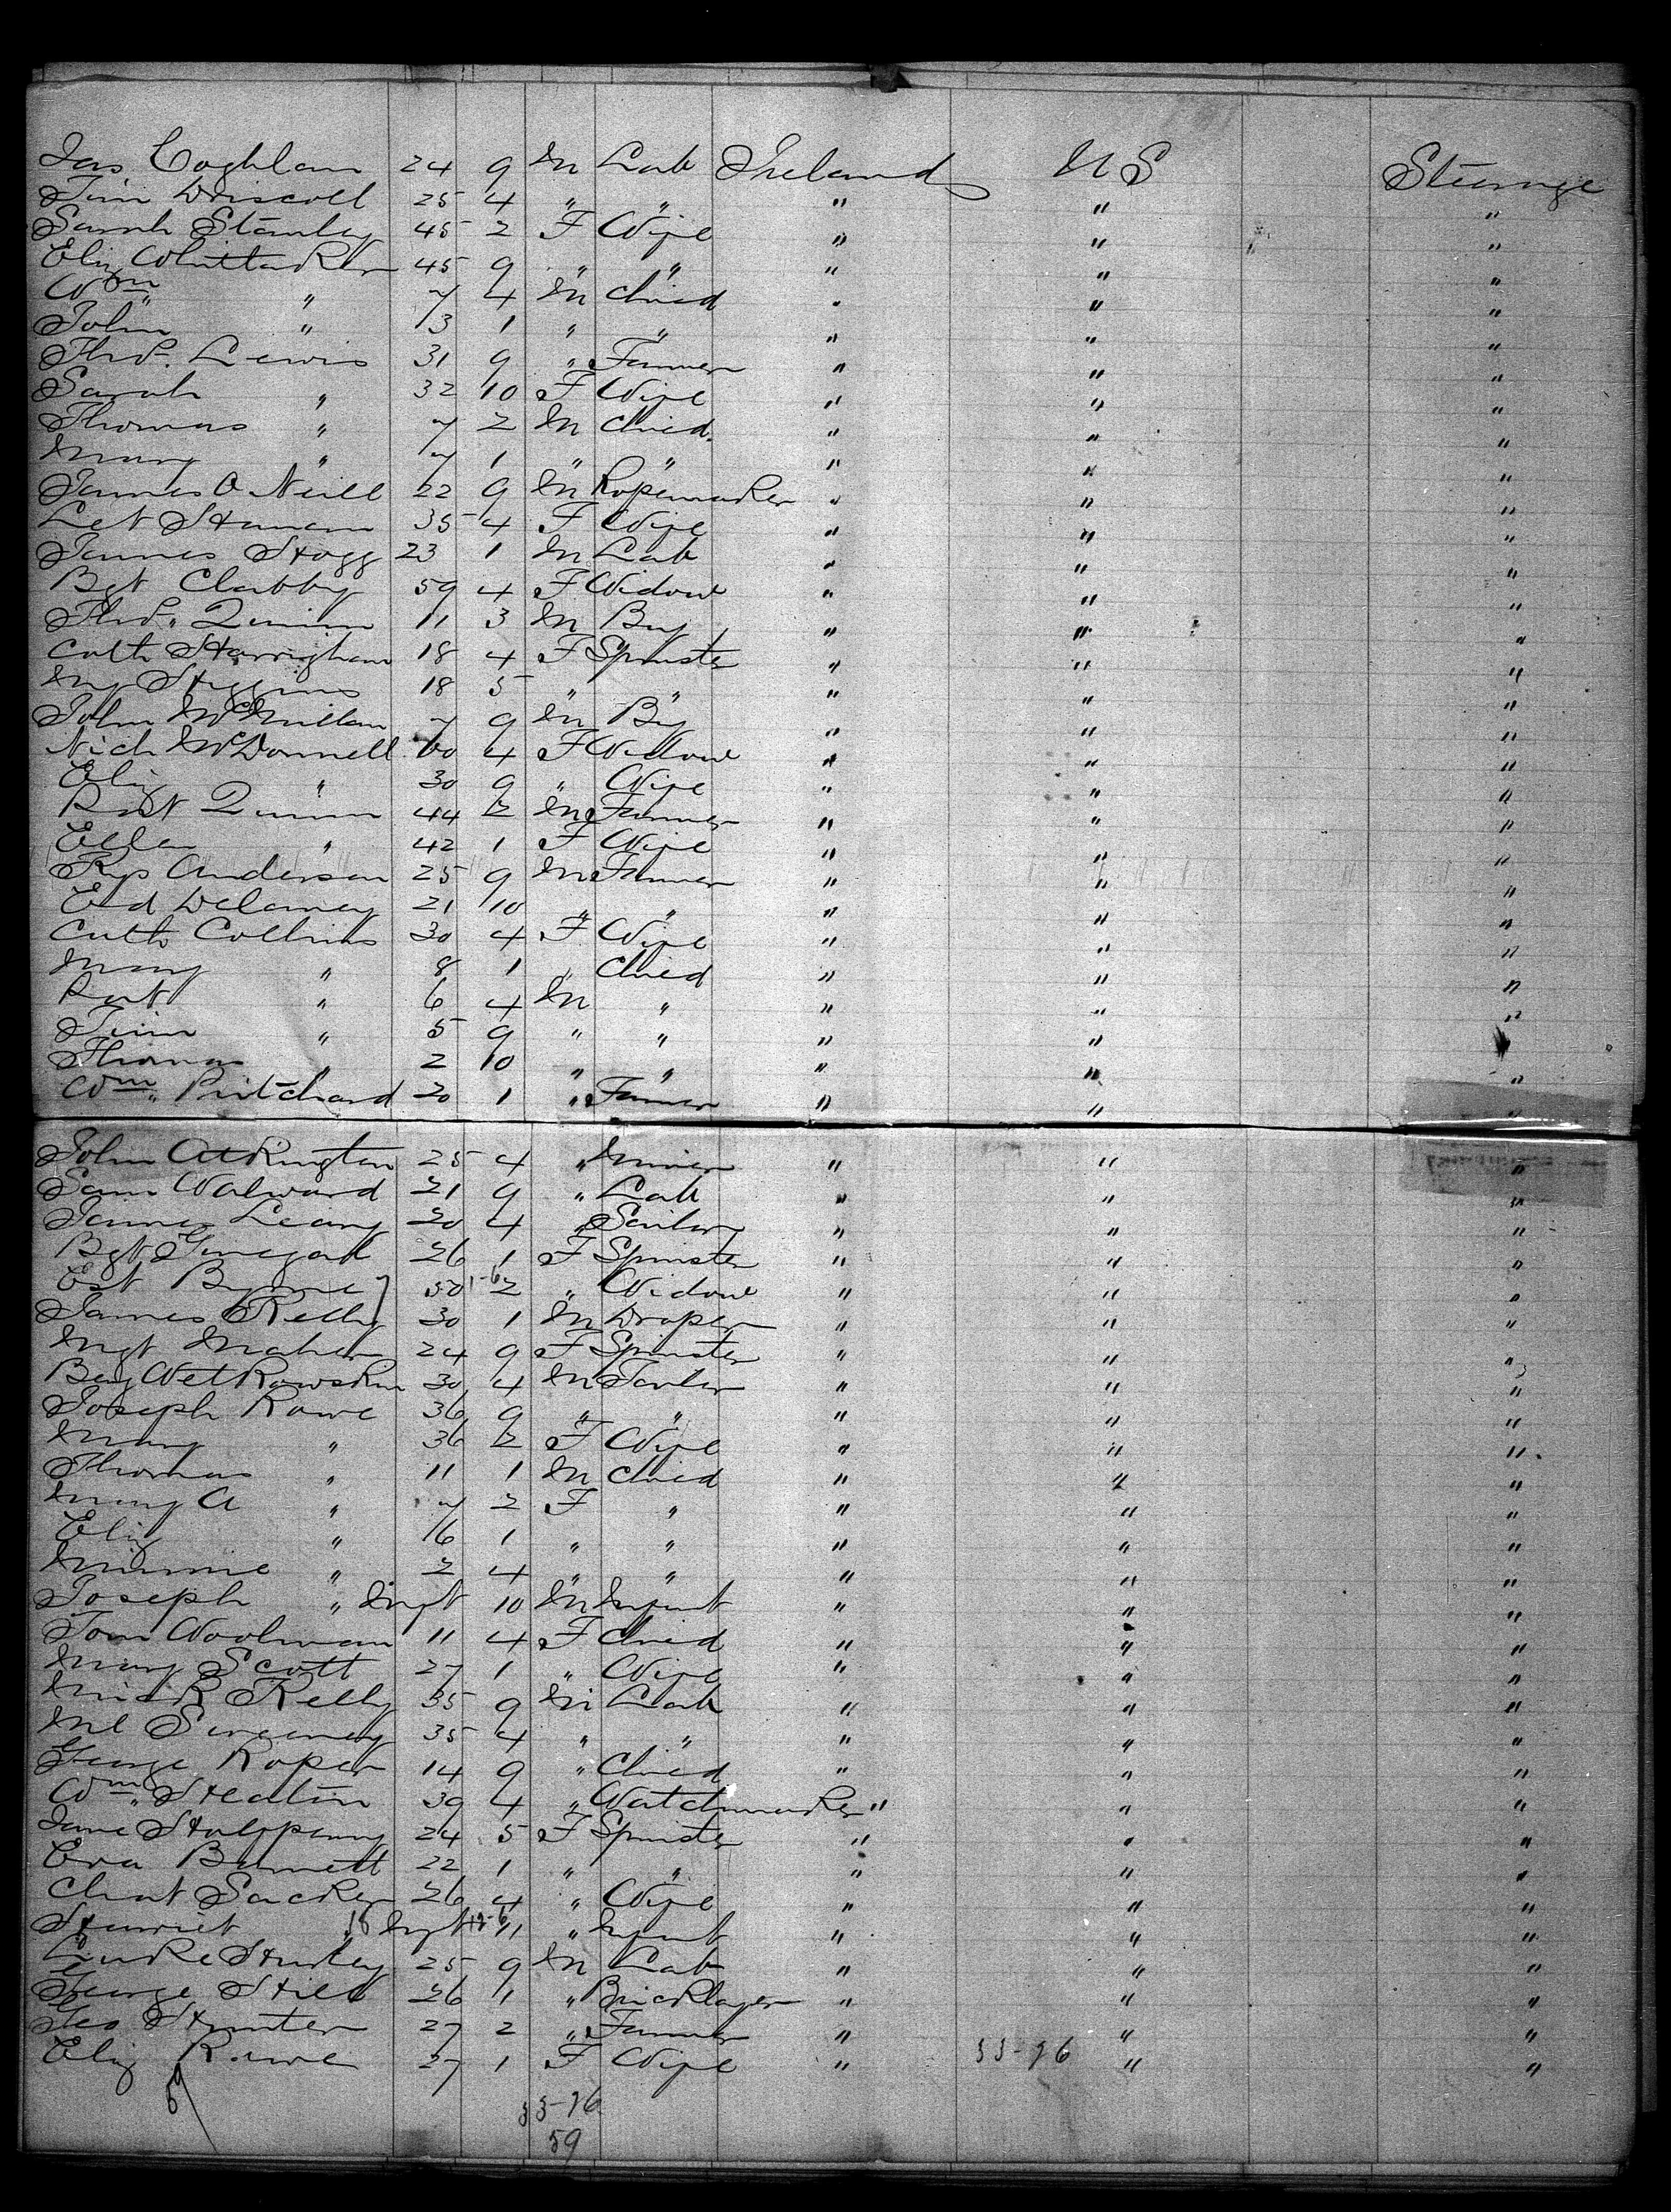 Jas Coghlan 24 9 m Lab Ireland U S Steerage
Tim Driscoll 25 4 " " " " "
Sarah Stanley 45 2 F Wife " " "
Eliz Whittaker 45 9 " " " " "
Wm " 7 4 m Child " " "
John " 13 1 " " " " "
Thos. Lewis 31 9 " Farmer " " "
Sarah " 32 10 F Wife " " "
Thomas " 7 2 m Child " " "
Mary " 7 1 " " " " "
James O Neill 22 9 m Ropemaker " " "
35 4 F Wife " " "
James Hogg 23 1 m Lab " " "
Bgt Clabby 59 4 F Widow " " "
Thos. Quinn 11 3 m Boy " " "
Cath Harrigham 18 4 F Spinster " " "
My Higgins 18 5 " " " " "
John McMillan 7 9 m Boy " " "
Nich McDonnell 60 4 F Widow " " "
Eliz " 30 9 " Wife " " "
Quinn 44 2 m Farmer " " "
Ellen " 42 1 F Wife " " "
Anderson 25 9 m Farmer " " "
Ed Delaney 21 10 " " " " "
Cath Collins 30 4 F Wife " " "
Mary " 8 1 " Child " " "
" 6 4 m " " " "
Tim " 5 9 " " " " "
Thomas " 2 10 " " " " "
Wm Pritchard 20 1 " Farmer " " "
John Atkington 25 4 " Miner " " "
Sam Walward 21 9 " Lab " " "
James Leary 20 4 " Sailor " " "
Bgt 26 1 F Spinster " " "
Est Byrne 50 2 " Widow " " "
James Kelly 30 1 m Draper " " "
Mgt Maher 24 9 F Spinster " " "
Benj 30 4 m Tailor " " "
Joseph Rowe 36 9 " " " " "
Mary " 36 2 F Wife " " "
Thomas " 11 1 m Child " " "
Mary A " 7 2 F " " " "
Eliz " 16 1 " " " " "
Minnie " 2 4 " " " " "
Joseph " Inft 10 m Infant " " "
Tom Woolman 11 4 F Child " " "
Mary Scott 27 1 " Wife " " "
Mick Kelly 35 9 m Lab " " "
Ml Sweeney 35 4 " " " " "
George Roper 14 9 " Child " " "
Wm Heaton 39 4 " Watchmaker " " "
Jane Halfpenny 24 5 F Spinster " " "
Eva Burnett 22 1 " " " " "
Chat Sacker 26 4 " Wife " " "
Harriet Inft 11 " Infant " " "
Luke Hurley 25 9 m Lab " " "
George Hill 26 1 " Bricklayer " " "
Geo Hunter 27 2 " Farmer " " "
Eliz Rowe 27 1 F Wife " 33-26 " "
59
33-26
59